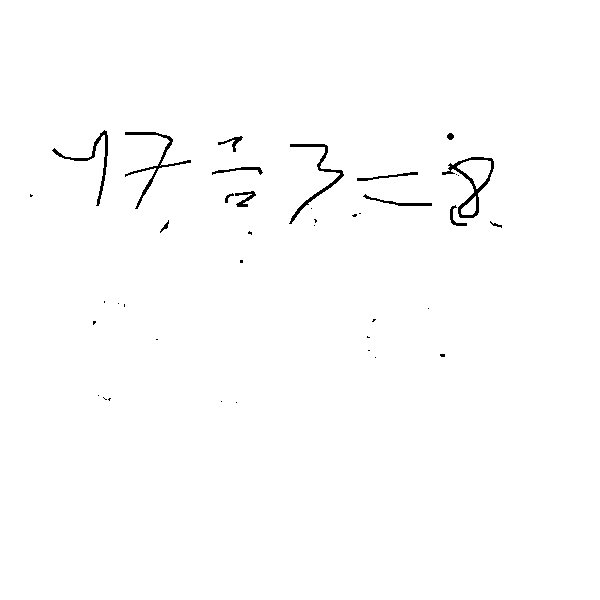 47÷3=8